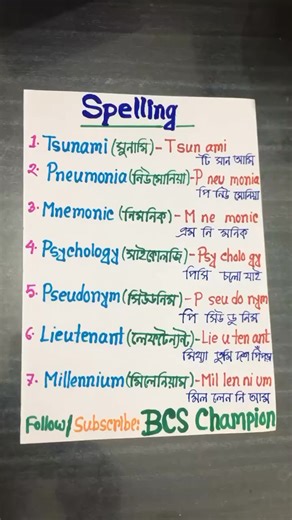 Spelling
1. Tsunami (সুনামি) - Tsun ami
টি সান আমি
2. Pneumonia (নিউমোনিয়া) - P neu monia
পি নিউ মোনিয়া
3. Mnemonic (নিমনিক) - M ne monic
এম নি মনিক
4. Psychology (সাইকোলজি) - Psy cholo gy
পিসি চলো যাই
5. Pseudonym (সিউডনিম) - P seu do nym
পি সিউ ডু নিম
6. Lieutenant (লেফটেন্যান্ট) - Lie u ten ant
মিথ্যা তুমি দশ পিঁপড়া
7. Millennium (মিলেনিয়াম) - Mil len ni um
মিল লেন নি আম
Follow/Subscribe: BCS Champion